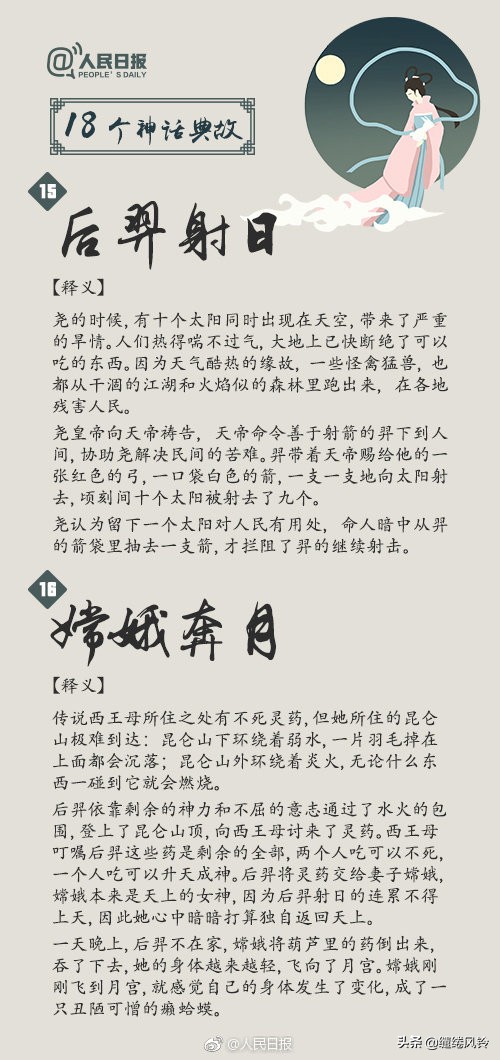 @人民日报
PEOPLE'S DAILY
18个神话典故
15
后羿射日
【释义】
尧的时候,有十个太阳同时出现在天空,带来了严重
的旱情。人们热得喘不过气,大地上已快断绝了可以
吃的东西。因为天气酷热的缘故, 一些怪禽猛兽, 也
都从干涸的江湖和火焰似的森林里跑出来, 在各地
残害人民。
尧皇帝向天帝祷告, 天帝命令善于射箭的羿下到人
间,协助尧解决民间的苦难。羿带着天帝赐给他的一
张红色的弓,一口袋白色的箭,一支一支地向太阳射
去,顷刻间十个太阳被射去了九个。
尧认为留下一个太阳对人民有用处, 命人暗中从羿
的箭袋里抽去一支箭,才拦阻了羿的继续射击。
16
嫦娥奔月
【释义】
传说西王母所住之处有不死灵药,但她所住的昆仑
山极难到达：昆仑山下环绕着弱水,一片羽毛掉在
上面都会沉落；昆仑山外环绕着炎火,无论什么东
西一碰到它就会燃烧。
后羿依靠剩余的神力和不屈的意志通过了水火的包
围,登上了昆仑山顶,向西王母讨来了灵药。西王母
叮嘱后羿这些药是剩余的全部,两个人吃可以不死,
一个人吃可以升天成神。后羿将灵药交给妻子嫦娥,
嫦娥本来是天上的女神,因为后羿射日的连累不得
上天,因此她心中暗暗打算独自返回天上。
一天晚上,后羿不在家,嫦娥将葫芦里的药倒出来,
吞了下去,她的身体越来越轻,飞向了月宫。嫦娥刚
刚飞到月宫,就感觉自己的身体发生了变化,成了一
只丑陋可憎的癞蛤蟆。
@人民日报
头条 @缠绻风铃